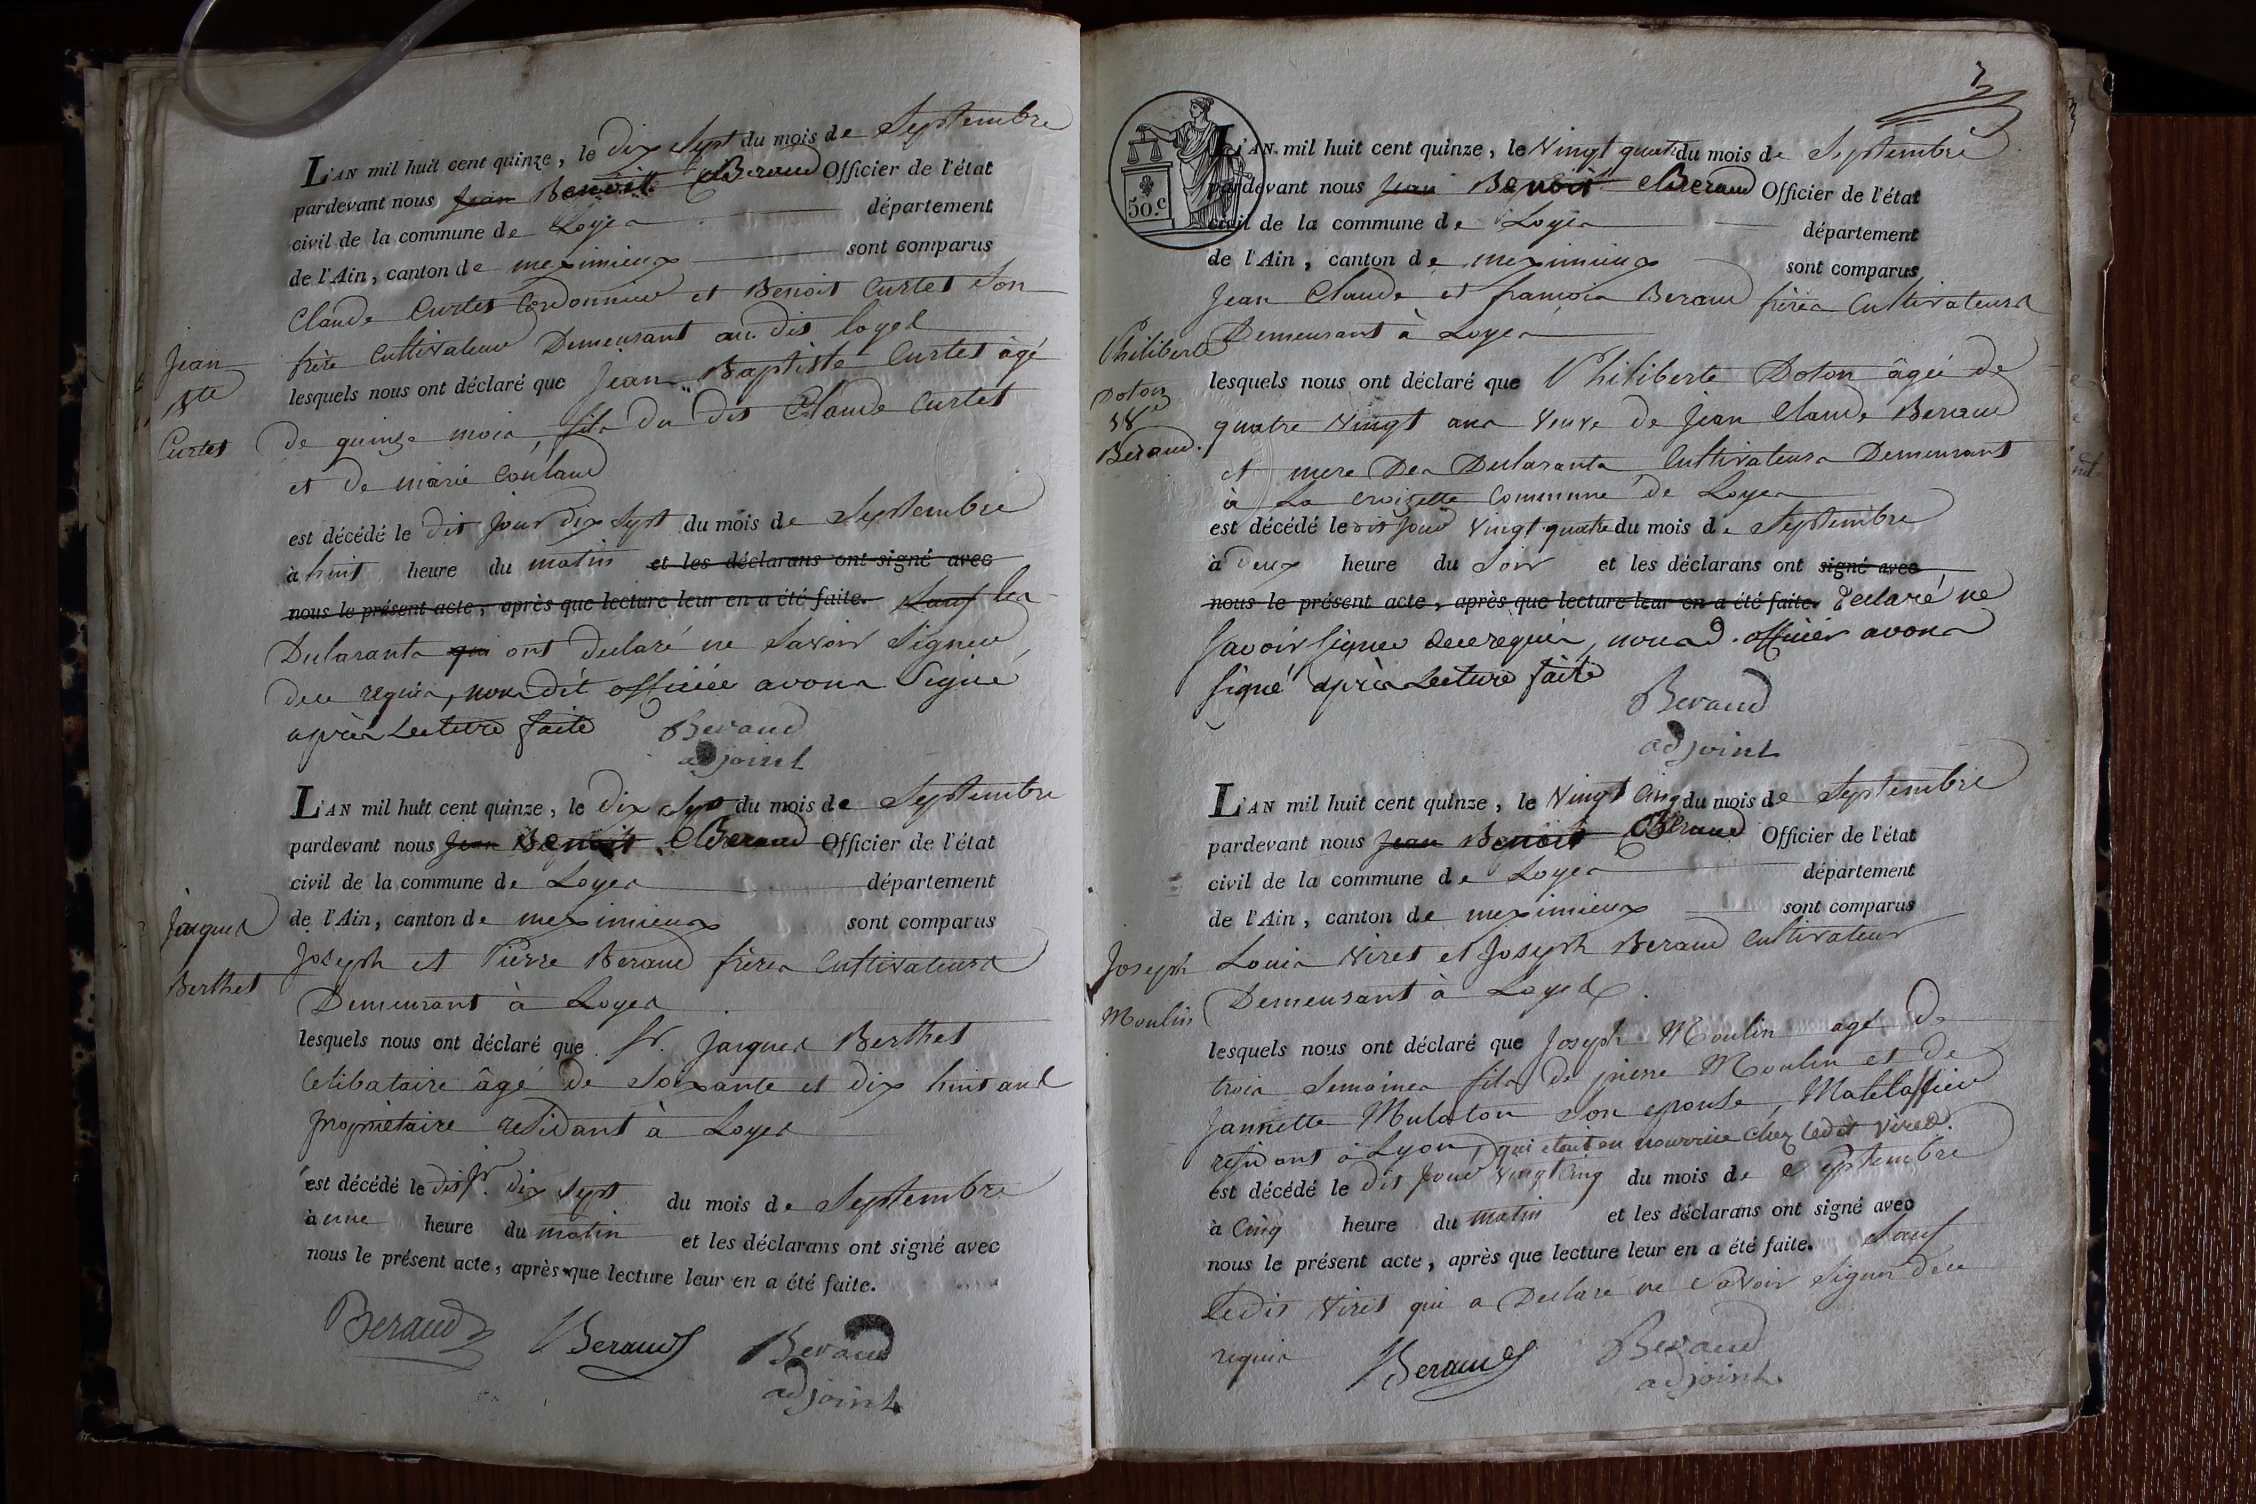 L'AN mil huit cent quinze, le dix sept du mois de Septembre
pardevant nous Jean Benoit Beraud Officier de l'état
civil de la commune de Loyes département
de l'Ain, canton de meximieux sont comparus
Claude Curtet Cordonnier et Benoit Curtet Son
frère Cultivateur Demeurant au dit loyes
Jean
Bte
Curtet
lesquels nous ont déclaré que Jean Baptiste Curtet âgé
de quinze mois, fils du dit Claude Curtet
et de marie Coulaud
est décédé le dit jour dix sept du mois de Septembre
à huit heure du matin et les déclarans ont signé avec
nous le présent acte, après que lecture leur en a été faite. Sauf les
Déclarants qui ont declaré ne Savoir Signer,
dece requis, nous dit officier avons Signé
après Lecture faite Beraud
adjoint
L'AN mil huit cent quinze, le dix Sept du mois de Septembre
pardevant nous Jean Benoit Beraud Officier de l'état
civil de la commune de Loyes département
de l'Ain, canton de meximieux sont comparus
Jacques
Berthet
Joseph et Pierre Beraud frères Cultivateurs
Demeurant à Loyes
lesquels nous ont déclaré que Sr. Jacques Berthet
Celibataire âgé de Soixante et dix huit ans
propriétaire residant à Loyes
est décédé le dit jr. dix sept du mois de Septembre
à une heure du matin et les déclarans ont signé avec
nous le présent acte, après que lecture leur en a été faite.
Beraud Beraud Beraud
adjoint
50.c
L'AN mil huit cent quinze, le Vingt quatre du mois de Septembre
pardevant nous Jean Benoit Beraud Officier de l'état
civil de la commune de Loyes département
de l'Ain, canton de meximieux sont comparus
Jean Claude et francois Beraud frères Cultivateurs
Demeurant à Loyes
Philiberte
Doton
Ve
Beraud.
lesquels nous ont déclaré que Philiberte Doton âgée de
quatre Vingt ans Veuve de Jean Claude Beraud
et mere Des Declarants Cultivateurs Demeurant
à La Croizette Commune de Loyes
est décédé le dit Jour Vingt quatre du mois de Septembre
à deux heure du Soir et les déclarans ont signé avec
nous le présent acte, après que lecture leur en a été faite. declaré ne
Savoir Signer dece requis, nous d. officier avons
Signé après Lecture faite
Beraud
adjoint
L'AN mil huit cent quinze, le Vingt Cinq du mois de Septembre
pardevant nous Jean Benoit Beraud Officier de l'état
civil de la commune de Loyes département
de l'Ain, canton de meximieux sont comparus
Joseph
Moulin
Louis Viret et Joseph Beraud Cultivateur
Demeurant à Loyes
lesquels nous ont déclaré que Joseph Moulin agé de
trois Semaines fils de pierre Moulin et de
Jannette Mulaton Son epouse, Matelassier
residant à Lyon, qui etoit en nourrice chez ledit Viret.
est décédé le dit Jour Vingt Cinq du mois de Septembre
à Cinq heure du matin et les déclarans ont signé avec
nous le présent acte, après que lecture leur en a été faite. Sauf
Ledit Viret qui a Declaré ne Savoir Signer dece
requis Beraud Beraud
adjoint